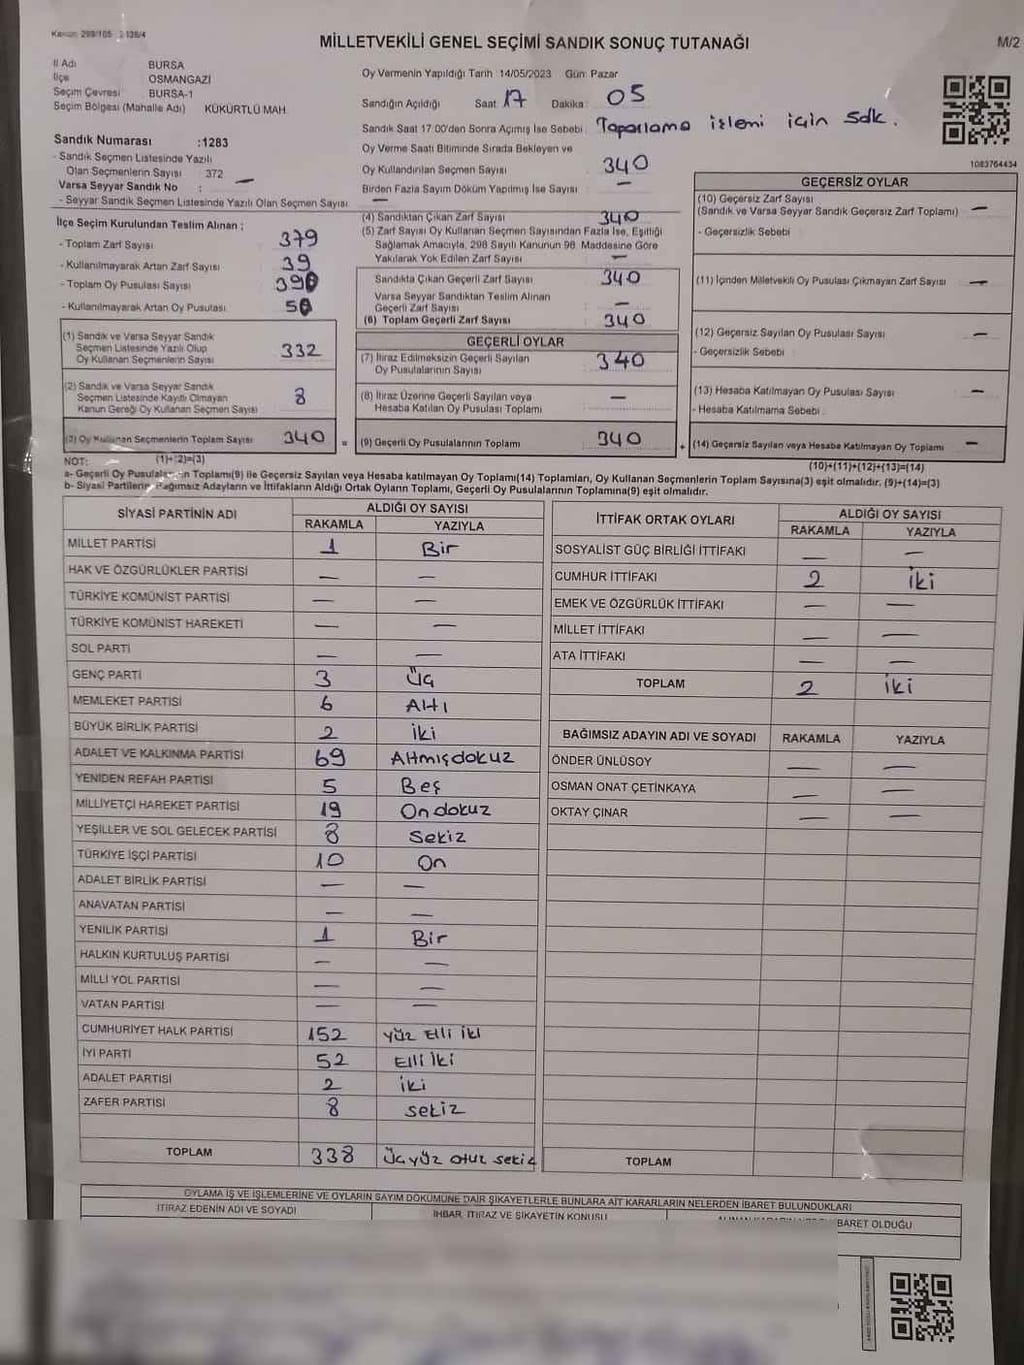 Kanun: 298/105 2 138/4
MİLLETVEKİLİ GENEL SEÇİMİ SANDIK SONUÇ TUTANAĞI
M/2
İl Adı BURSA
İlçe OSMANGAZİ
Seçim Çevresi BURSA-1
Seçim Bölgesi (Mahalle Adı) KÜKÜRTLÜ MAH.
Sandık Numarası :1283
- Sandık Seçmen Listesinde Yazılı
Olan Seçmenlerin Sayısı 372
Varsa Seyyar Sandık No : —
- Seyyar Sandık Seçmen Listesinde Yazılı Olan Seçmen Sayısı —
Oy Vermenin Yapıldığı Tarih 14/05/2023 Gün: Pazar
Sandığın Açıldığı Saat 17 Dakika: 05
Sandık Saat 17:00'den Sonra Açılmış İse Sebebi: Toparlama işlemi için 5dk.
Oy Verme Saati Bitiminde Sırada Bekleyen ve
Oy Kullandırılan Seçmen Sayısı 340
Birden Fazla Sayım Döküm Yapılmış İse Sayısı —
1083764434
İlçe Seçim Kurulundan Teslim Alınan ;
- Toplam Zarf Sayısı 379
- Kullanılmayarak Artan Zarf Sayısı 39
- Toplam Oy Pusulası Sayısı 390
- Kullanılmayarak Artan Oy Pusulası 50
(1) Sandık ve Varsa Seyyar Sandık
Seçmen Listesinde Yazılı Olup
Oy Kullanan Seçmenlerin Sayısı 332
(2) Sandık ve Varsa Seyyar Sandık
Seçmen Listesinde Kayıtlı Olmayan
Kanun Gereği Oy Kullanan Seçmen Sayısı 8
(3) Oy Kullanan Seçmenlerin Toplam Sayısı 340 =
(4) Sandıktan Çıkan Zarf Sayısı 340
(5) Zarf Sayısı Oy Kullanan Seçmen Sayısından Fazla İse, Eşitliği
Sağlamak Amacıyla, 298 Sayılı Kanunun 98. Maddesine Göre
Yakılarak Yok Edilen Zarf Sayısı —
Sandıkta Çıkan Geçerli Zarf Sayısı 340
Varsa Seyyar Sandıktan Teslim Alınan
Geçerli Zarf Sayısı —
(6) Toplam Geçerli Zarf Sayısı 340
GEÇERLİ OYLAR
(7) İtiraz Edilmeksizin Geçerli Sayılan
Oy Pusulalarının Sayısı 340
(8) İtiraz Üzerine Geçerli Sayılan veya
Hesaba Katılan Oy Pusulası Toplamı —
(9) Geçerli Oy Pusulalarının Toplamı 340 +
GEÇERSİZ OYLAR
(10) Geçersiz Zarf Sayısı —
(Sandık ve Varsa Seyyar Sandık Geçersiz Zarf Toplamı)
- Geçersizlik Sebebi
(11) İçinden Milletvekili Oy Pusulası Çıkmayan Zarf Sayısı —
(12) Geçersiz Sayılan Oy Pusulası Sayısı —
- Geçersizlik Sebebi
(13) Hesaba Katılmayan Oy Pusulası Sayısı —
- Hesaba Katılmama Sebebi
(14) Geçersiz Sayılan veya Hesaba Katılmayan Oy Toplamı —
NOT: (1)+(2)=(3) (10)+(11)+(12)+(13)=(14)
a- Geçerli Oy Pusulalarının Toplamı(9) ile Geçersiz Sayılan veya Hesaba katılmayan Oy Toplamı(14) Toplamları, Oy Kullanan Seçmenlerin Toplam Sayısına(3) eşit olmalıdır. (9)+(14)=(3)
b- Siyasi Partilerin, Bağımsız Adayların ve İttifakların Aldığı Ortak Oyların Toplamı, Geçerli Oy Pusulalarının Toplamına(9) eşit olmalıdır.
SİYASİ PARTİNİN ADI ALDIĞI OY SAYISI
RAKAMLA YAZIYLA
MİLLET PARTİSİ 1 Bir
HAK VE ÖZGÜRLÜKLER PARTİSİ — —
TÜRKİYE KOMÜNİST PARTİSİ — —
TÜRKİYE KOMÜNİST HAREKETİ — —
SOL PARTİ — —
GENÇ PARTİ 3 Üç
MEMLEKET PARTİSİ 6 Altı
BÜYÜK BİRLİK PARTİSİ 2 iki
ADALET VE KALKINMA PARTİSİ 69 Altmışdokuz
YENİDEN REFAH PARTİSİ 5 Beş
MİLLİYETÇİ HAREKET PARTİSİ 19 On dokuz
YEŞİLLER VE SOL GELECEK PARTİSİ 8 Sekiz
TÜRKİYE İŞÇİ PARTİSİ 10 On
ADALET BİRLİK PARTİSİ — —
ANAVATAN PARTİSİ — —
YENİLİK PARTİSİ 1 Bir
HALKIN KURTULUŞ PARTİSİ — —
MİLLİ YOL PARTİSİ — —
VATAN PARTİSİ — —
CUMHURİYET HALK PARTİSİ 152 yüz Elli iki
İYİ PARTİ 52 Elli iki
ADALET PARTİSİ 2 iki
ZAFER PARTİSİ 8 sekiz
TOPLAM 338 Üçyüz otuz sekiz
İTTİFAK ORTAK OYLARI ALDIĞI OY SAYISI
RAKAMLA YAZIYLA
SOSYALİST GÜÇ BİRLİĞİ İTTİFAKI — —
CUMHUR İTTİFAKI 2 iki
EMEK VE ÖZGÜRLÜK İTTİFAKI — —
MİLLET İTTİFAKI — —
ATA İTTİFAKI — —
TOPLAM 2 iki
BAĞIMSIZ ADAYIN ADI VE SOYADI RAKAMLA YAZIYLA
ÖNDER ÜNLÜSOY — —
OSMAN ONAT ÇETİNKAYA — —
OKTAY ÇINAR — —
TOPLAM
OYLAMA İŞ VE İŞLEMLERİNE VE OYLARIN SAYIM DÖKÜMÜNE DAİR ŞİKAYETLERLE BUNLARA AİT KARARLARIN NELERDEN İBARET BULUNDUKLARI
İTİRAZ EDENİN ADI VE SOYADI İHBAR, İTİRAZ VE ŞİKAYETİN KONUSU İBARET OLDUĞU